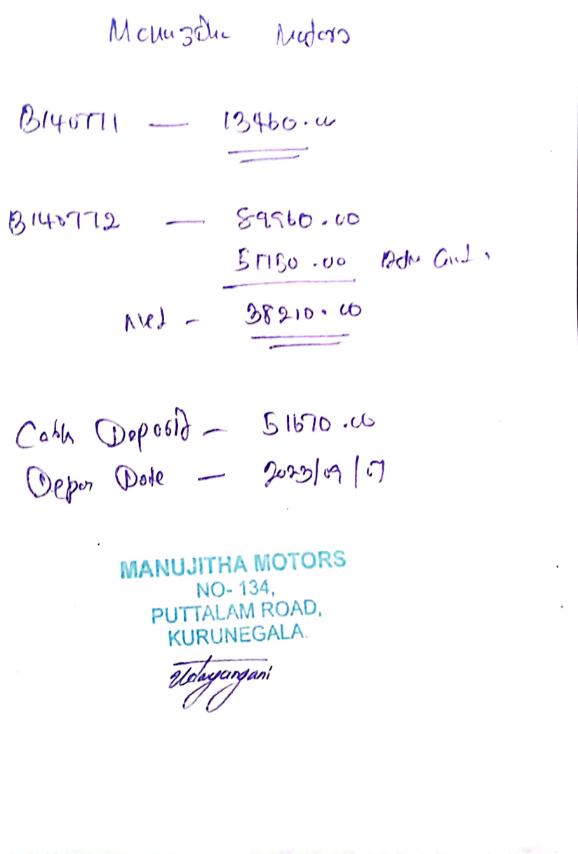 Manujitha Motors
B140771 — 13460.00
B140772 — 89960.00
51750.00
Net - 38210.00
Cash Deposit — 51670.00
Depos Date — 2023/09/07
MANUJITHA MOTORS
NO- 134,
PUTTALAM ROAD,
KURUNEGALA.
Udayangani